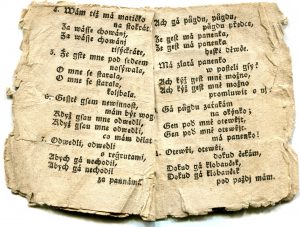 4. Wám též má matičko
na stokrát
Za wásse chowání,
Za wásse chowání,
tisýckráte,
5. Že gste mně pod srdcem
nosýwala,
O mne se starala,
O mne se starala,
kolíbala.
6. Gesstě gsem newinnost,
mám být wog
Když gsau mne odwedli,
Když gsau mne odwedli,
co mám dělat.
7. Odwedli, odwedli
s regrutami,
Abych gá nechodil
Abych gá nechodil
za pannámi.
Ach gá půgdu, půgdu
půgdu, předce
Že gest má panenka,
Že gest má panenka,
hezké děwče.
Má zlatá panenko
w posteli spíš?
Ach kýž gest mně možno,
Ach kýž gest mně možno
promluwit s ní;
Gá půgdu zatukám
na okýnko;
Gen pod mně otewři,
Gen pod mně otewři,
má panenko!
Otewři, otewři,
dokud čekám,
Dokud gá klobauček
Dokud gá klobauček
pod pažj mám.